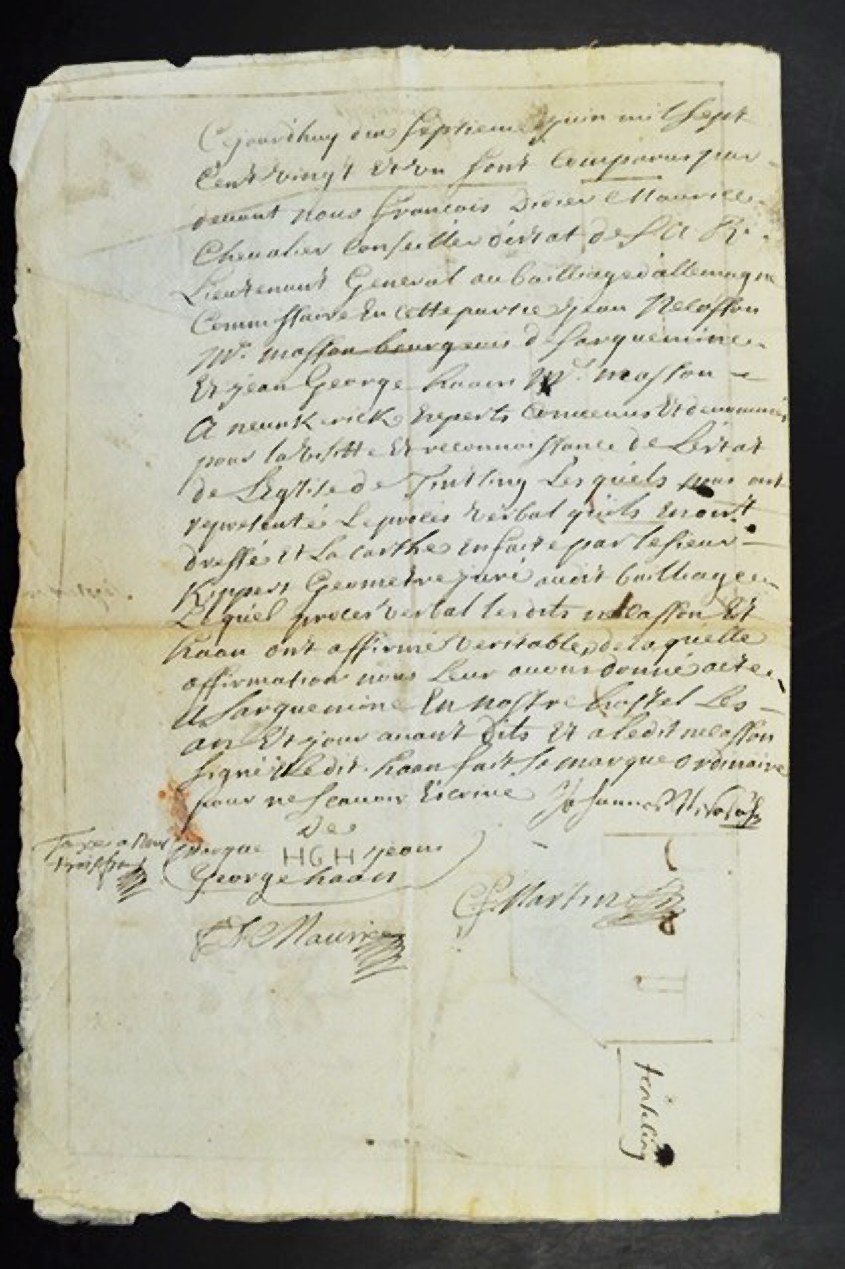 Cejourdhuy dix septieme juin mil sept
Cent vingt Et un sont Comparus par
devant nous francois Didier Maurice
Chevalier Conseiller d'estat de S A R.
Lieutenant General au bailliage d'allemagne
Commissaire En cette partie jean
Mr. masson bourgeois de Sarguemine
Et jean George haan Mr. masson
A neunK Experts Convenus Et denommés
pour la visitte Et reconnoissance de Lestat
de Leglise de Tintling Lesquels nous ont
representé Le proces verbal quils En ont
dressé Et La carthe En faite par le sieur
Kippert Geometre juré audit bailliage
Lequel proces verbal lesdits Et
haan ont affirmé veritable, de laquelle
affirmation nous Leur avons donné acte
A Sarguemine En nostre hostel Les
an Et jour avant dits Et a ledit
signé Et ledit haan fait sa marque ordinaire
pour ne scavoir Escrire Johannes
marque de HGH jean
George haan
C F Martin
F D Maurice
tentling